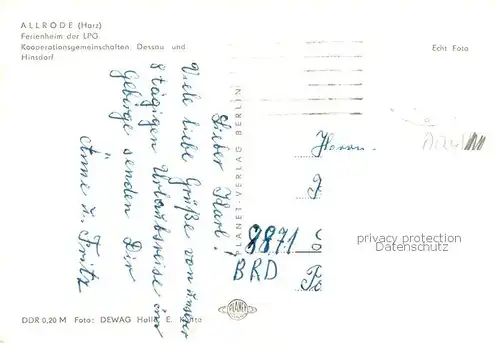 ALLRODE (Harz)
Ferienheim der LPG
Kooperationsgemeinschaften Dessau und
Hinsdorf
Echt Foto
Lieber Karl!
Viele liebe Grüße von unserer
8 tägigen Urlaubsreise im
Gebirge senden Dir
Anne u. Fritz
PLANET-VERLAG BERLIN
Herrn
8871
BRD
privacy protection
Datenschutz
PLANET
DDR 0,20 M Foto: DEWAG Halle, E.